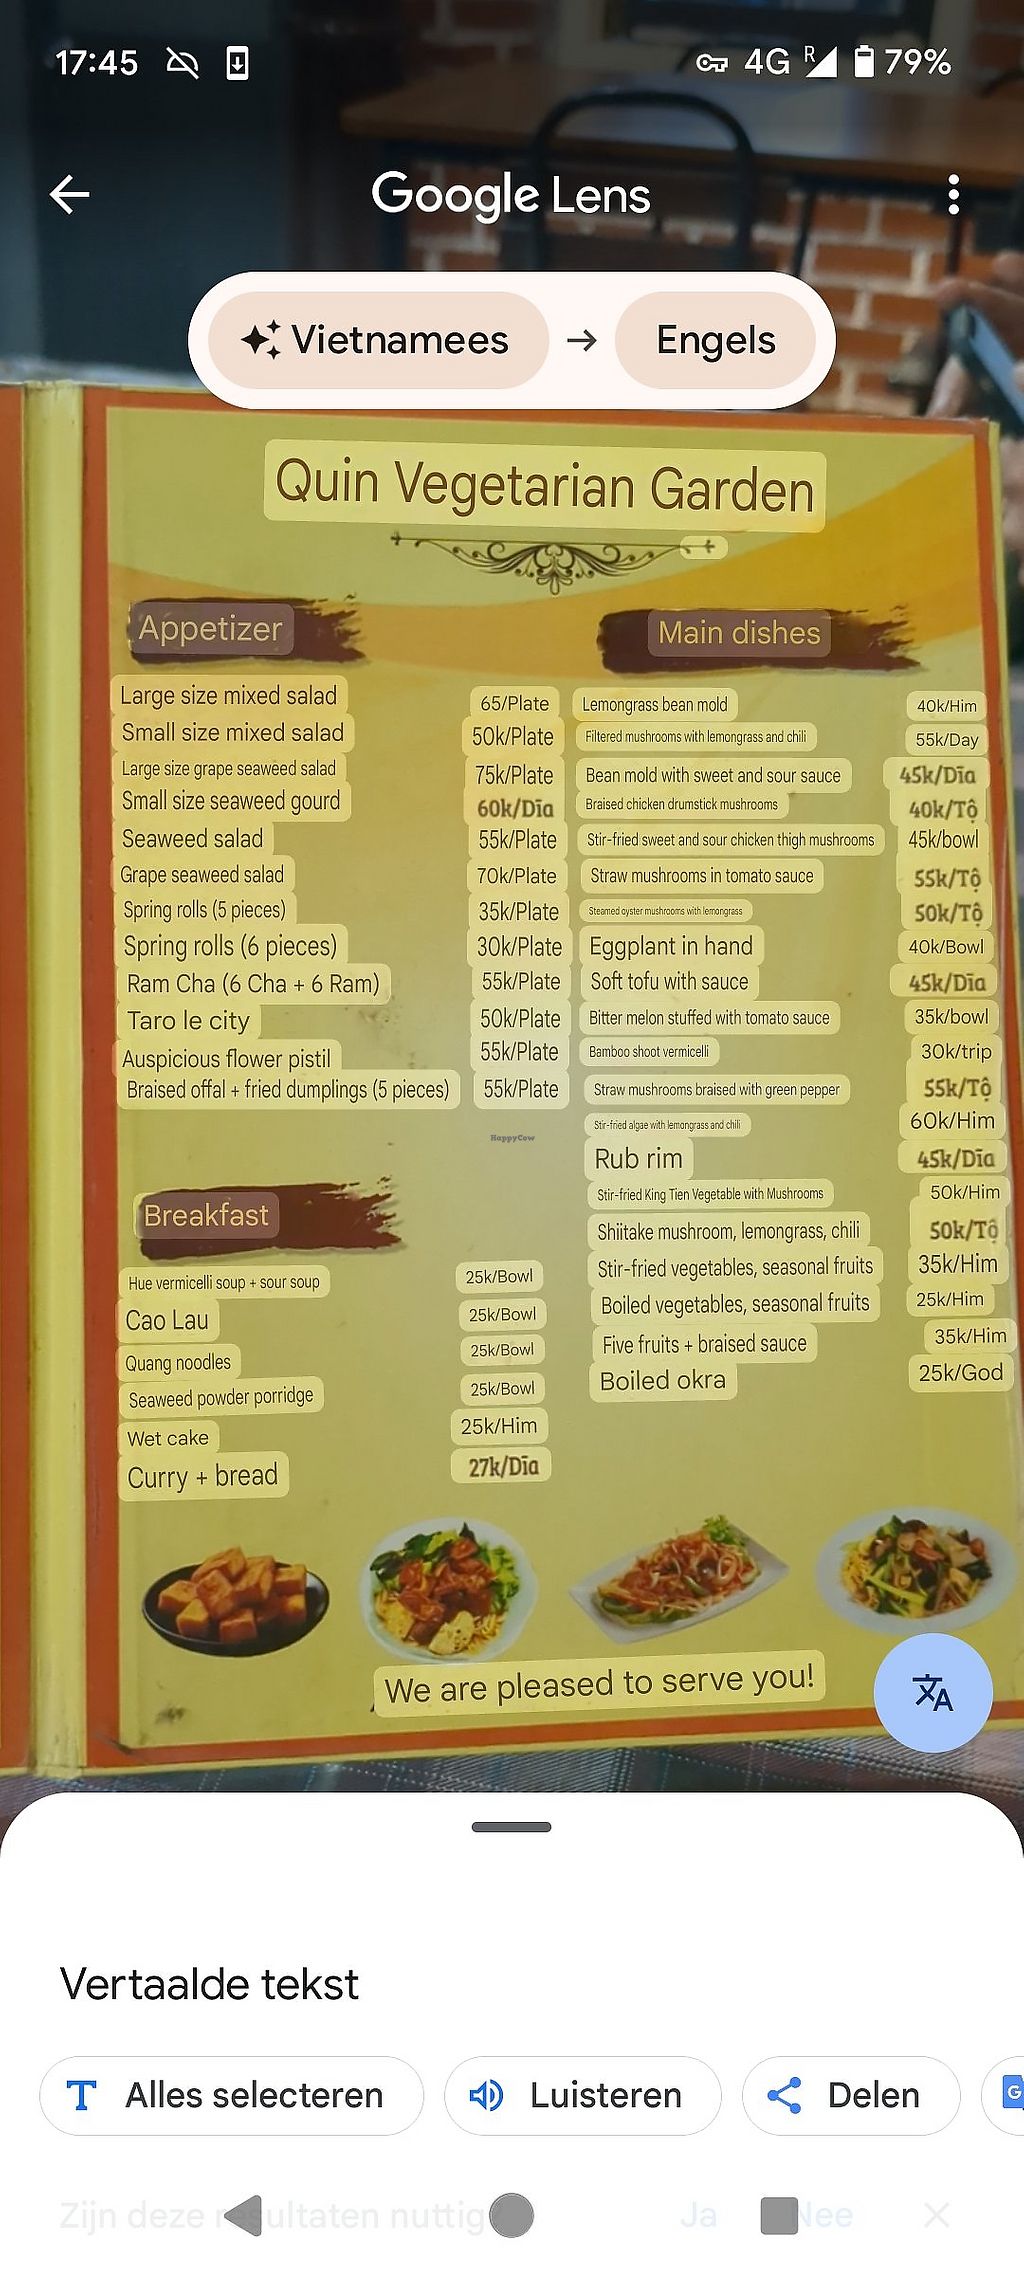 17:45
4G R 79%
Google Lens
Vietnamees → Engels
Quin Vegetarian Garden
Appetizer
Large size mixed salad 65/Plate
Small size mixed salad 50k/Plate
Large size grape seaweed salad 75k/Plate
Small size seaweed gourd 60k/Dĩa
Seaweed salad 55k/Plate
Grape seaweed salad 70k/Plate
Spring rolls (5 pieces) 35k/Plate
Spring rolls (6 pieces) 30k/Plate
Ram Cha (6 Cha + 6 Ram) 55k/Plate
Taro le city 50k/Plate
Auspicious flower pistil 55k/Plate
Braised offal + fried dumplings (5 pieces) 55k/Plate
Breakfast
Hue vermicelli soup + sour soup 25k/Bowl
Cao Lau 25k/Bowl
Quang noodles 25k/Bowl
Seaweed powder porridge 25k/Bowl
Wet cake 25k/Him
Curry + bread 27k/Dĩa
Main dishes
Lemongrass bean mold 40k/Him
Filtered mushrooms with lemongrass and chili 55k/Day
Bean mold with sweet and sour sauce 45k/Dĩa
Braised chicken drumstick mushrooms 40k/Tộ
Stir-fried sweet and sour chicken thigh mushrooms 45k/bowl
Straw mushrooms in tomato sauce 55k/Tộ
Steamed oyster mushrooms with lemongrass 50k/Tộ
Eggplant in hand 40k/Bowl
Soft tofu with sauce 45k/Dĩa
Bitter melon stuffed with tomato sauce 35k/bowl
Bamboo shoot vermicelli 30k/trip
Straw mushrooms braised with green pepper 55k/Tộ
Stir-fried algae with lemongrass and chili 60k/Him
Rub rim 45k/Dĩa
Stir-fried King Tien Vegetable with Mushrooms 50k/Him
Shiitake mushroom, lemongrass, chili 50k/Tộ
Stir-fried vegetables, seasonal fruits 35k/Him
Boiled vegetables, seasonal fruits 25k/Him
Five fruits + braised sauce 35k/Him
Boiled okra 25k/God
HappyCow
We are pleased to serve you!
Vertaalde tekst
Alles selecteren
Luisteren
Delen
Zijn deze resultaten nuttig Ja Nee